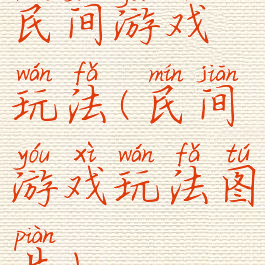 民间游戏
wán fǎ mín jiān
玩法(民间
yóu xì wán fǎ tú
游戏玩法图
piàn
片)